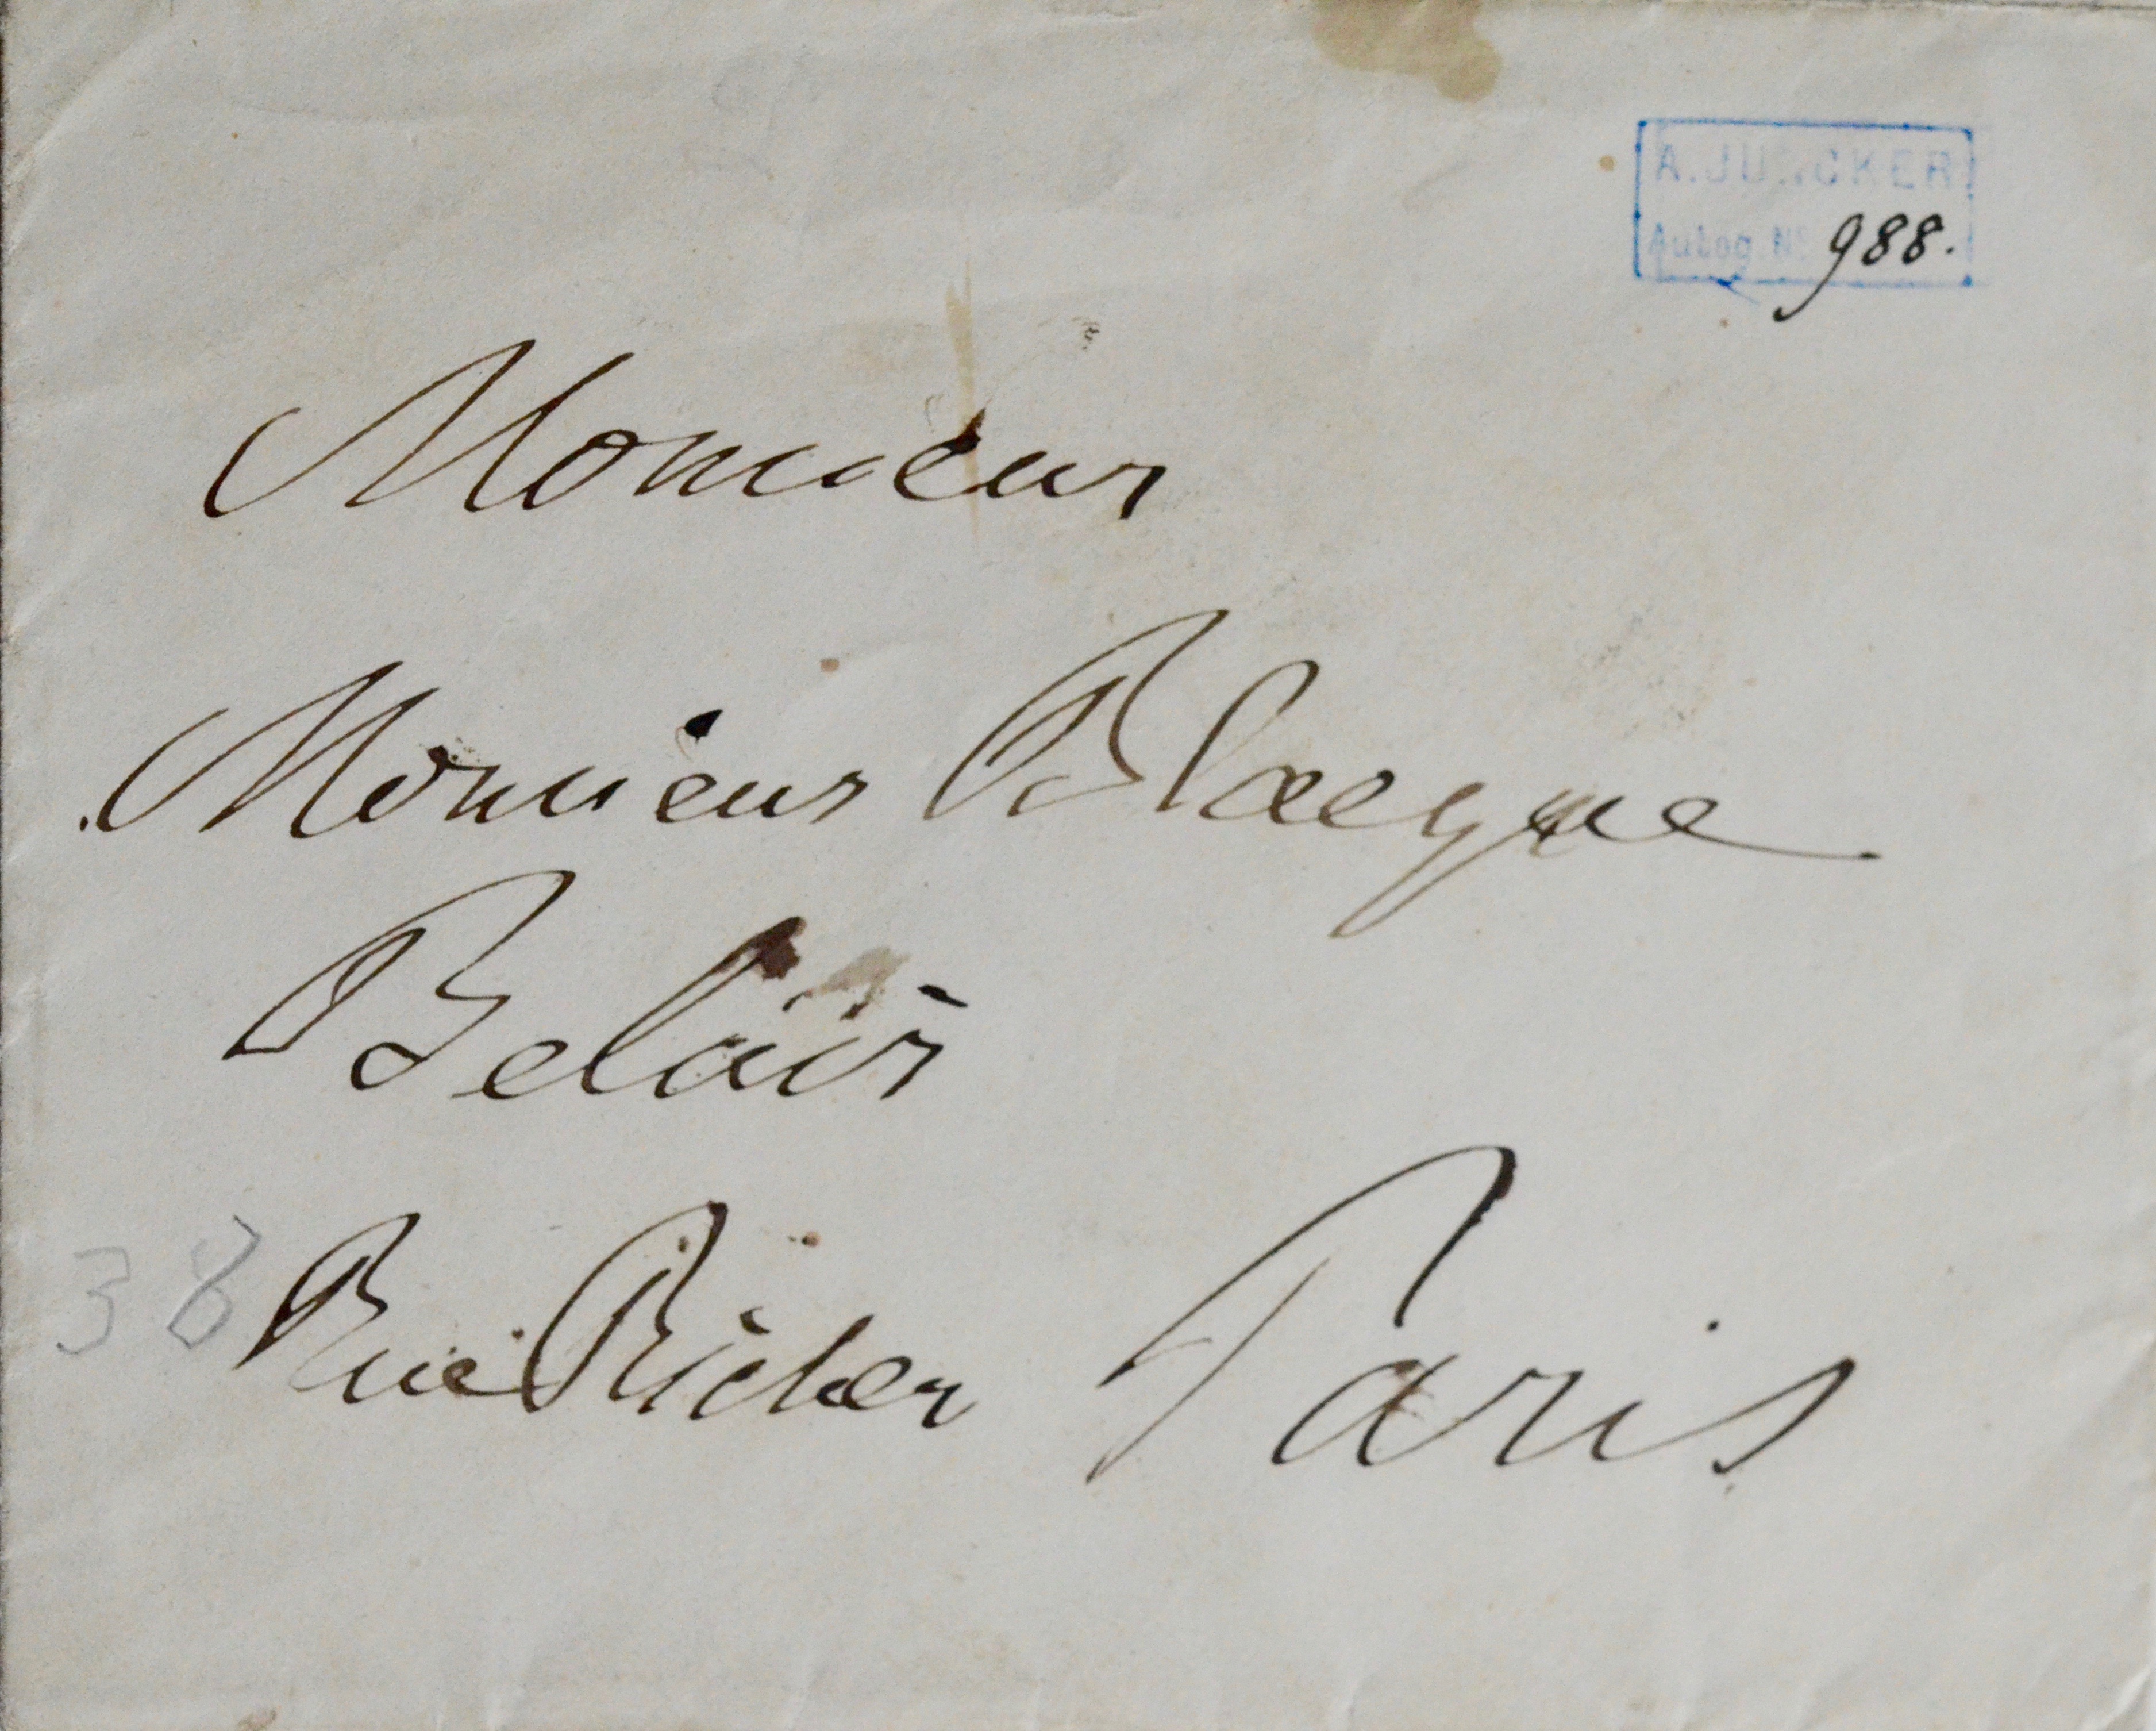 A. JUNCKER
Autog Nº 988.
Monsieur
Monsieur Blacque
Belair
38 Rue Richer Paris